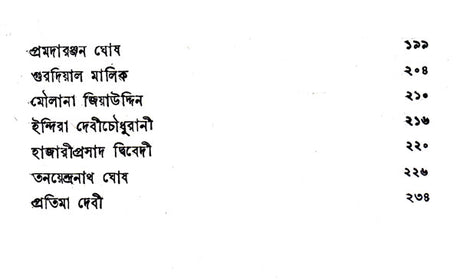 প্রমদারঞ্জন ঘোষ ১৯৯
গুরদিয়াল মালিক ২০৪
মৌলানা জিয়াউদ্দিন ২১০
ইন্দিরা দেবীচৌধুরানী ২১৬
হাজারীপ্রসাদ দ্বিবেদী ২২০
তনয়েন্দ্রনাথ ঘোষ ২২৬
প্রতিমা দেবী ২৩৪